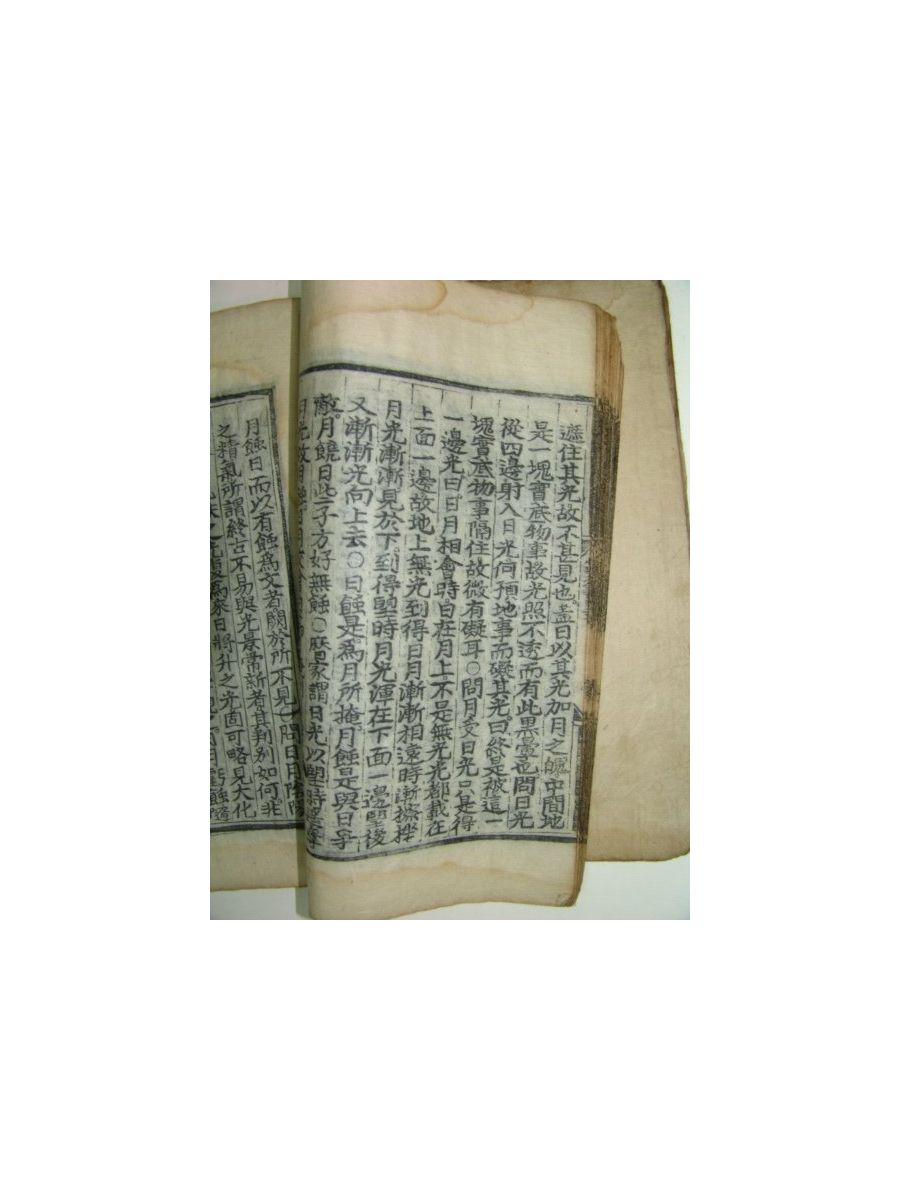 遮住其光故不甚見也蓋日以其光加月之魄中間地
是一塊實底物事故光照不透而有此黑暈也問日光
從四邊射入月光何預地事而礙其光曰終是被這一
塊實底物事隔住故微有礙耳○問月受日光只是得
一邊光曰日月相會時日在月上不是無光光都載在
上面一邊故地上無光到得日月漸漸相遠時漸擦挫
月光漸漸見於下到得望時月光渾在下面一邊望後
又漸漸光向上去○日蝕是爲月所掩月蝕是與日爭
敵月饒日些子方好無蝕○曆家謂日光以望時遙奪
月光故月蝕
月蝕日而以有蝕爲文者關於所不見○問日月陰陽
之精氣所謂終古不易與光景常新者其判別如何非
爲來日將升之光固可略見大化